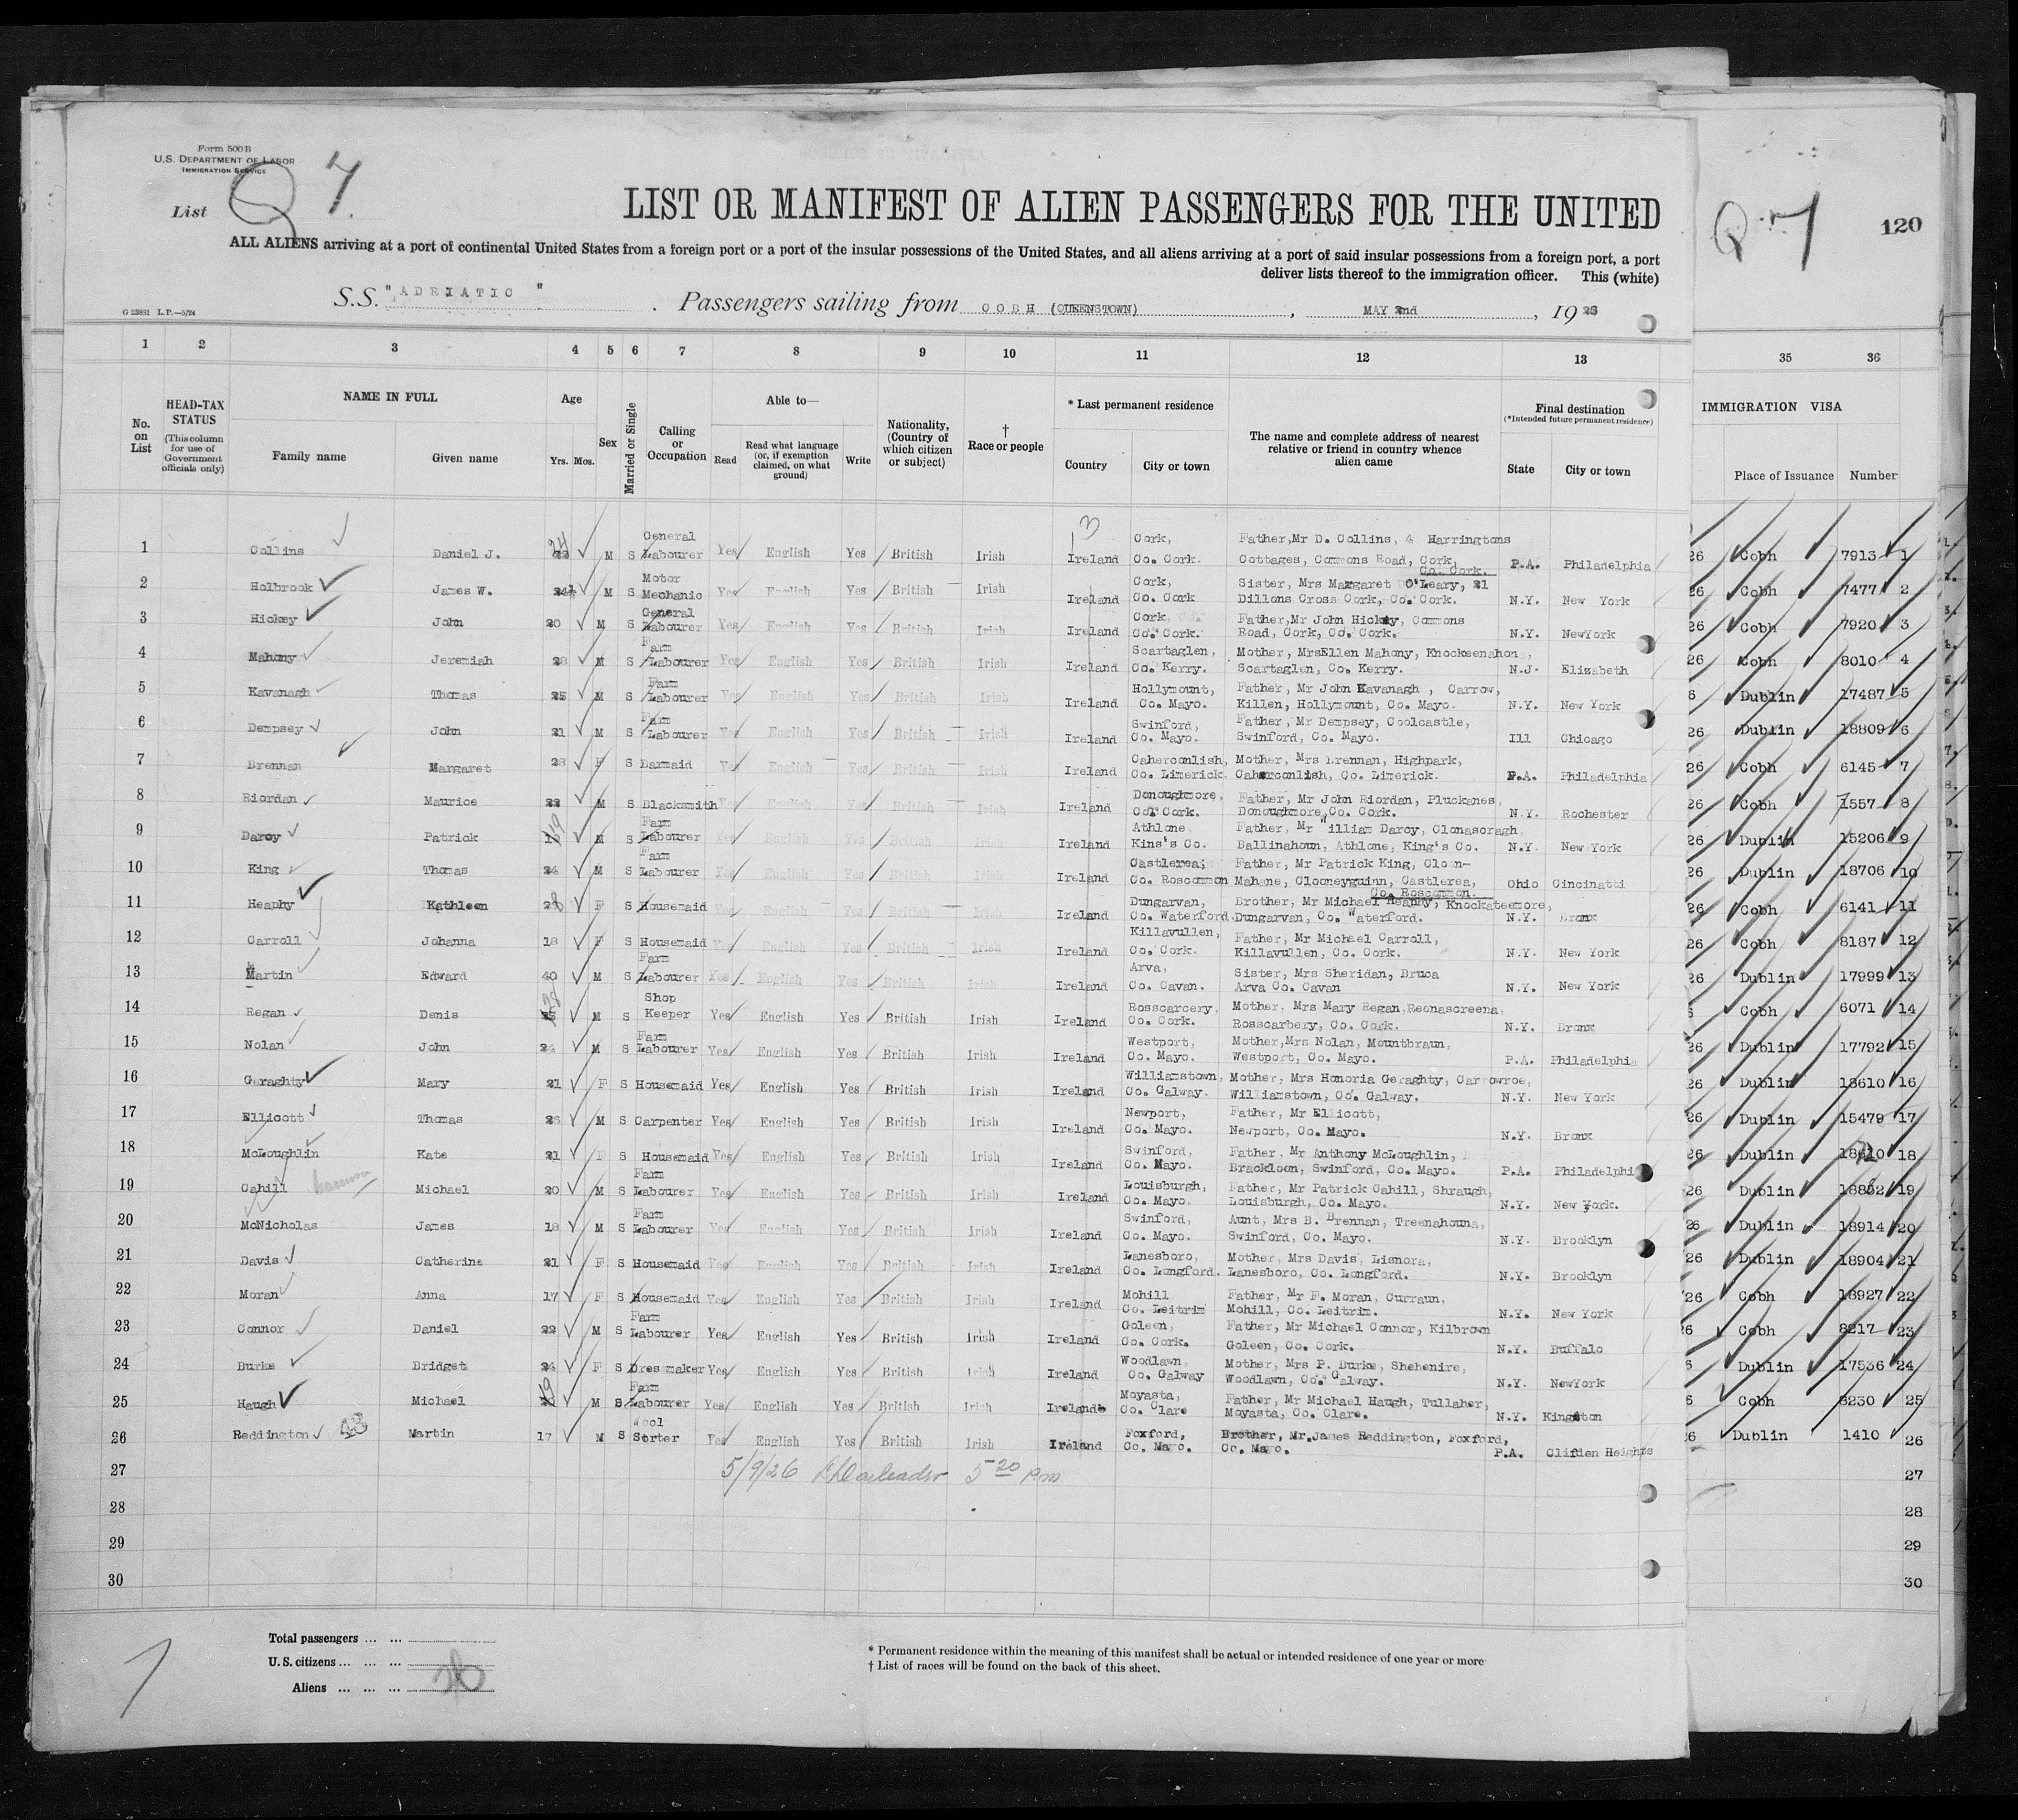 Form 500B
U.S. DEPARTMENT OF LABOR
IMMIGRATION SERVICE
List Q 7.
LIST OR MANIFEST OF ALIEN PASSENGERS FOR THE UNITED
Q 7 120
ALL ALIENS arriving at a port of continental United States from a foreign port or a port of the insular possessions of the United States, and all aliens arriving at a port of said insular possessions from a foreign port, a port
deliver lists thereof to the immigration officer. This (white)
S.S. "ADRIATIC" . Passengers sailing from COBH (QUEENSTOWN), MAY 2nd, 1926
G 23881 L.P.—5/24
1 2 3 4 5 6 7 8 9 10 11 12 13 35 36
No. on List
HEAD-TAX STATUS (This column for use of Government officials only)
NAME IN FULL
Family name Given name
Age Yrs. Mos.
Sex
Married or Single
Calling or Occupation
Able to—
Read Read what language (or, if exemption claimed, on what ground) Write
Nationality, (Country of which citizen or subject)
† Race or people
* Last permanent residence
Country City or town
The name and complete address of nearest relative or friend in country whence alien came
Final destination (*Intended future permanent residence)
State City or town
IMMIGRATION VISA
Place of Issuance Number
1 Collins Daniel J. 24 M S General Labourer Yes English Yes British Irish Ireland Cork, Co. Cork. Father, Mr D. Collins, 4 Harringtons Cottages, Commons Road, Cork, Co. Cork. P.A. Philadelphia 26 Cobh 7913 1
2 Holbrook James W. 24 M S Motor Mechanic Yes English Yes British Irish Ireland Cork, Co. Cork Sister, Mrs Margaret O'Leary, 21 Dillons Cross Cork, Co. Cork. N.Y. New York 26 Cobh 7477 2
3 Hickey John 20 M S General Labourer Yes English Yes British Irish Ireland Cork Co. Cork. Father, Mr John Hickey, Commons Road, Cork, Co. Cork. N.Y. NewYork 26 Cobh 7920 3
4 Mahony Jeremiah 28 M S Farm Labourer Yes English Yes British Irish Ireland Scartaglen, Co. Kerry. Mother, MrsEllen Mahony, Knocksenahon, Scartaglen, Co. Kerry. N.J. Elizabeth 26 Cobh 8010 4
5 Kavanagh Thomas 25 M S Farm Labourer Yes English Yes British Irish Ireland Hollymount, Co. Mayo. Father, Mr John Kavanagh, Carrow, Killen, Hollymount, Co. Mayo. N.Y. New York 6 Dublin 17487 5
6 Dempsey John 21 M S Farm Labourer Yes English Yes British Irish Ireland Swinford, Co. Mayo. Father, Mr Dempsey, Coolcastle, Swinford, Co. Mayo. Ill Chicago 26 Dublin 18809 6
7 Brennan Margaret 28 F S Barmaid Yes English Yes British Irish Ireland Caherconlish, Co. Limerick. Mother, Mrs Brennan, Highpark, Caherconlish, Co. Limerick. P.A. Philadelphia 26 Cobh 6145 7
8 Riordan Maurice 22 M S Blacksmith Yes English Yes British Irish Ireland Donoughmore, Co. Cork. Father, Mr John Riordan, Pluckanes, Donoughmore, Co. Cork. N.Y. Rochester 26 Cobh 7557 8
9 Darcy Patrick 19 M S Farm Labourer Yes English Yes British Irish Ireland Athlone, Kins's Co. Father, Mr William Darcy, Clonascragh, Ballinahoun, Athlone, King's Co. N.Y. New York 26 Dublin 15206 9
10 King Thomas 24 M S Farm Labourer Yes English Yes British Irish Ireland Castlerea, Co. Roscommon Father, Mr Patrick King, Cloon- Mahane, Clooneyguinn, Castlerea, Co. Roscommon. Ohio Cincinatti 26 Dublin 18706 10
11 Heaphy Kathleen 28 F S Housemaid Yes English Yes British Irish Ireland Dungarvan, Co. Waterford. Brother, Mr Michael Heaphy, Knockateemore, Dungarvan, Co. Waterford. N.Y. Bronx 26 Cobh 6141 11
12 Carroll Johanna 18 F S Housemaid Yes English Yes British Irish Ireland Killavullen, Co. Cork. Father, Mr Michael Carroll, Killavullen, Co. Cork. N.Y. New York 26 Cobh 8187 12
13 Martin Edward 40 M S Farm Labourer Yes English Yes British Irish Ireland Arva, Co. Cavan. Sister, Mrs Sheridan, Bruca Arva Co. Cavan N.Y. New York 26 Dublin 17999 13
14 Regan Denis 28 M S Shop Keeper Yes English Yes British Irish Ireland Rosscarcery, Co. Cork. Mother, Mrs Mary Regan, Reonascreena, Rosscarbery, Co. Cork. N.Y. Bronx 6 Cobh 6071 14
15 Nolan John 24 M S Farm Labourer Yes English Yes British Irish Ireland Westport, Co. Mayo. Mother, Mrs Nolan, Mountbraun, Westport, Co. Mayo. P.A. Philadelphia 26 Dublin 17792 15
16 Geraghty Mary 21 F S Housemaid Yes English Yes British Irish Ireland Williamstown, Co. Galway. Mother, Mrs Honoria Geraghty, Carrowroe, Williamstown, Co. Galway. N.Y. New York 26 Dublin 18610 16
17 Ellicott Thomas 26 M S Carpenter Yes English Yes British Irish Ireland Newport, Co. Mayo. Father, Mr Ellicott, Newport, Co. Mayo. N.Y. Bronx 26 Dublin 15479 17
18 McLoughlin Kate 21 F S Housemaid Yes English Yes British Irish Ireland Swinford, Co. Mayo. Father, Mr Anthony McLoughlin, Brackloon, Swinford, Co. Mayo. P.A. Philadelphi 26 Dublin 18 18
19 Cahill Michael 20 M S Farm Labourer Yes English Yes British Irish Ireland Louisburgh, Co. Mayo. Father, Mr Patrick Cahill, Shraugh, Louisburgh, Co. Mayo. N.Y. New York. 26 Dublin 18862 19
20 McNicholas James 18 M S Farm Labourer Yes English Yes British Irish Ireland Swinford, Co. Mayo. Aunt, Mrs B. Brennan, Treenahouna, Swinford, Co. Mayo. N.Y. Brooklyn 26 Dublin 18914 20
21 Davis Catherine 21 F S Housemaid Yes English Yes British Irish Ireland Lanesboro, Co. Longford. Mother, Mrs Davis, Lisnora, Lanesboro, Co. Longford. N.Y. Brooklyn 26 Dublin 18904 21
22 Moran Anna 17 F S Housemaid Yes English Yes British Irish Ireland Mohill, Co. Leitrim Father, Mr F. Moran, Curraun, Mohill, Co. Leitrim. N.Y. New York 26 Cobh 18927 22
23 Connor Daniel 22 M S Farm Labourer Yes English Yes British Irish Ireland Goleen, Co. Cork. Father, Mr Michael Connor, Kilbrown Goleen, Co. Cork. N.Y. Buffalo 26 Cobh 8217 23
24 Burke Bridget 24 F S Dressmaker Yes English Yes British Irish Ireland Woodlawn, Co. Galway Mother, Mrs P. Burke, Shehenire, Woodlawn, Co. Galway. N.Y. NewYork 6 Dublin 17536 24
25 Haugh Michael 19 M S Farm Labourer Yes English Yes British Irish Ireland Moyasta, Co. Clare Father, Mr Michael Haugh, Tullaher, Moyasta, Co. Clare. N.Y. Kingston 6 Cobh 8230 25
26 Reddington Martin 17 M S Wool Sorter Yes English Yes British Irish Ireland Foxford, Co. Mayo. Brother, Mr. James Reddington, Foxford, Co. Mayo. P.A. Clifden Heights 26 Dublin 1410 26
27 5/9/26 5 20 pm 27
28 28
29 29
30 30
Total passengers ... ...
U.S. citizens ... ... ...
Aliens ... ... ... 26
* Permanent residence within the meaning of this manifest shall be actual or intended residence of one year or more
† List of races will be found on the back of this sheet.